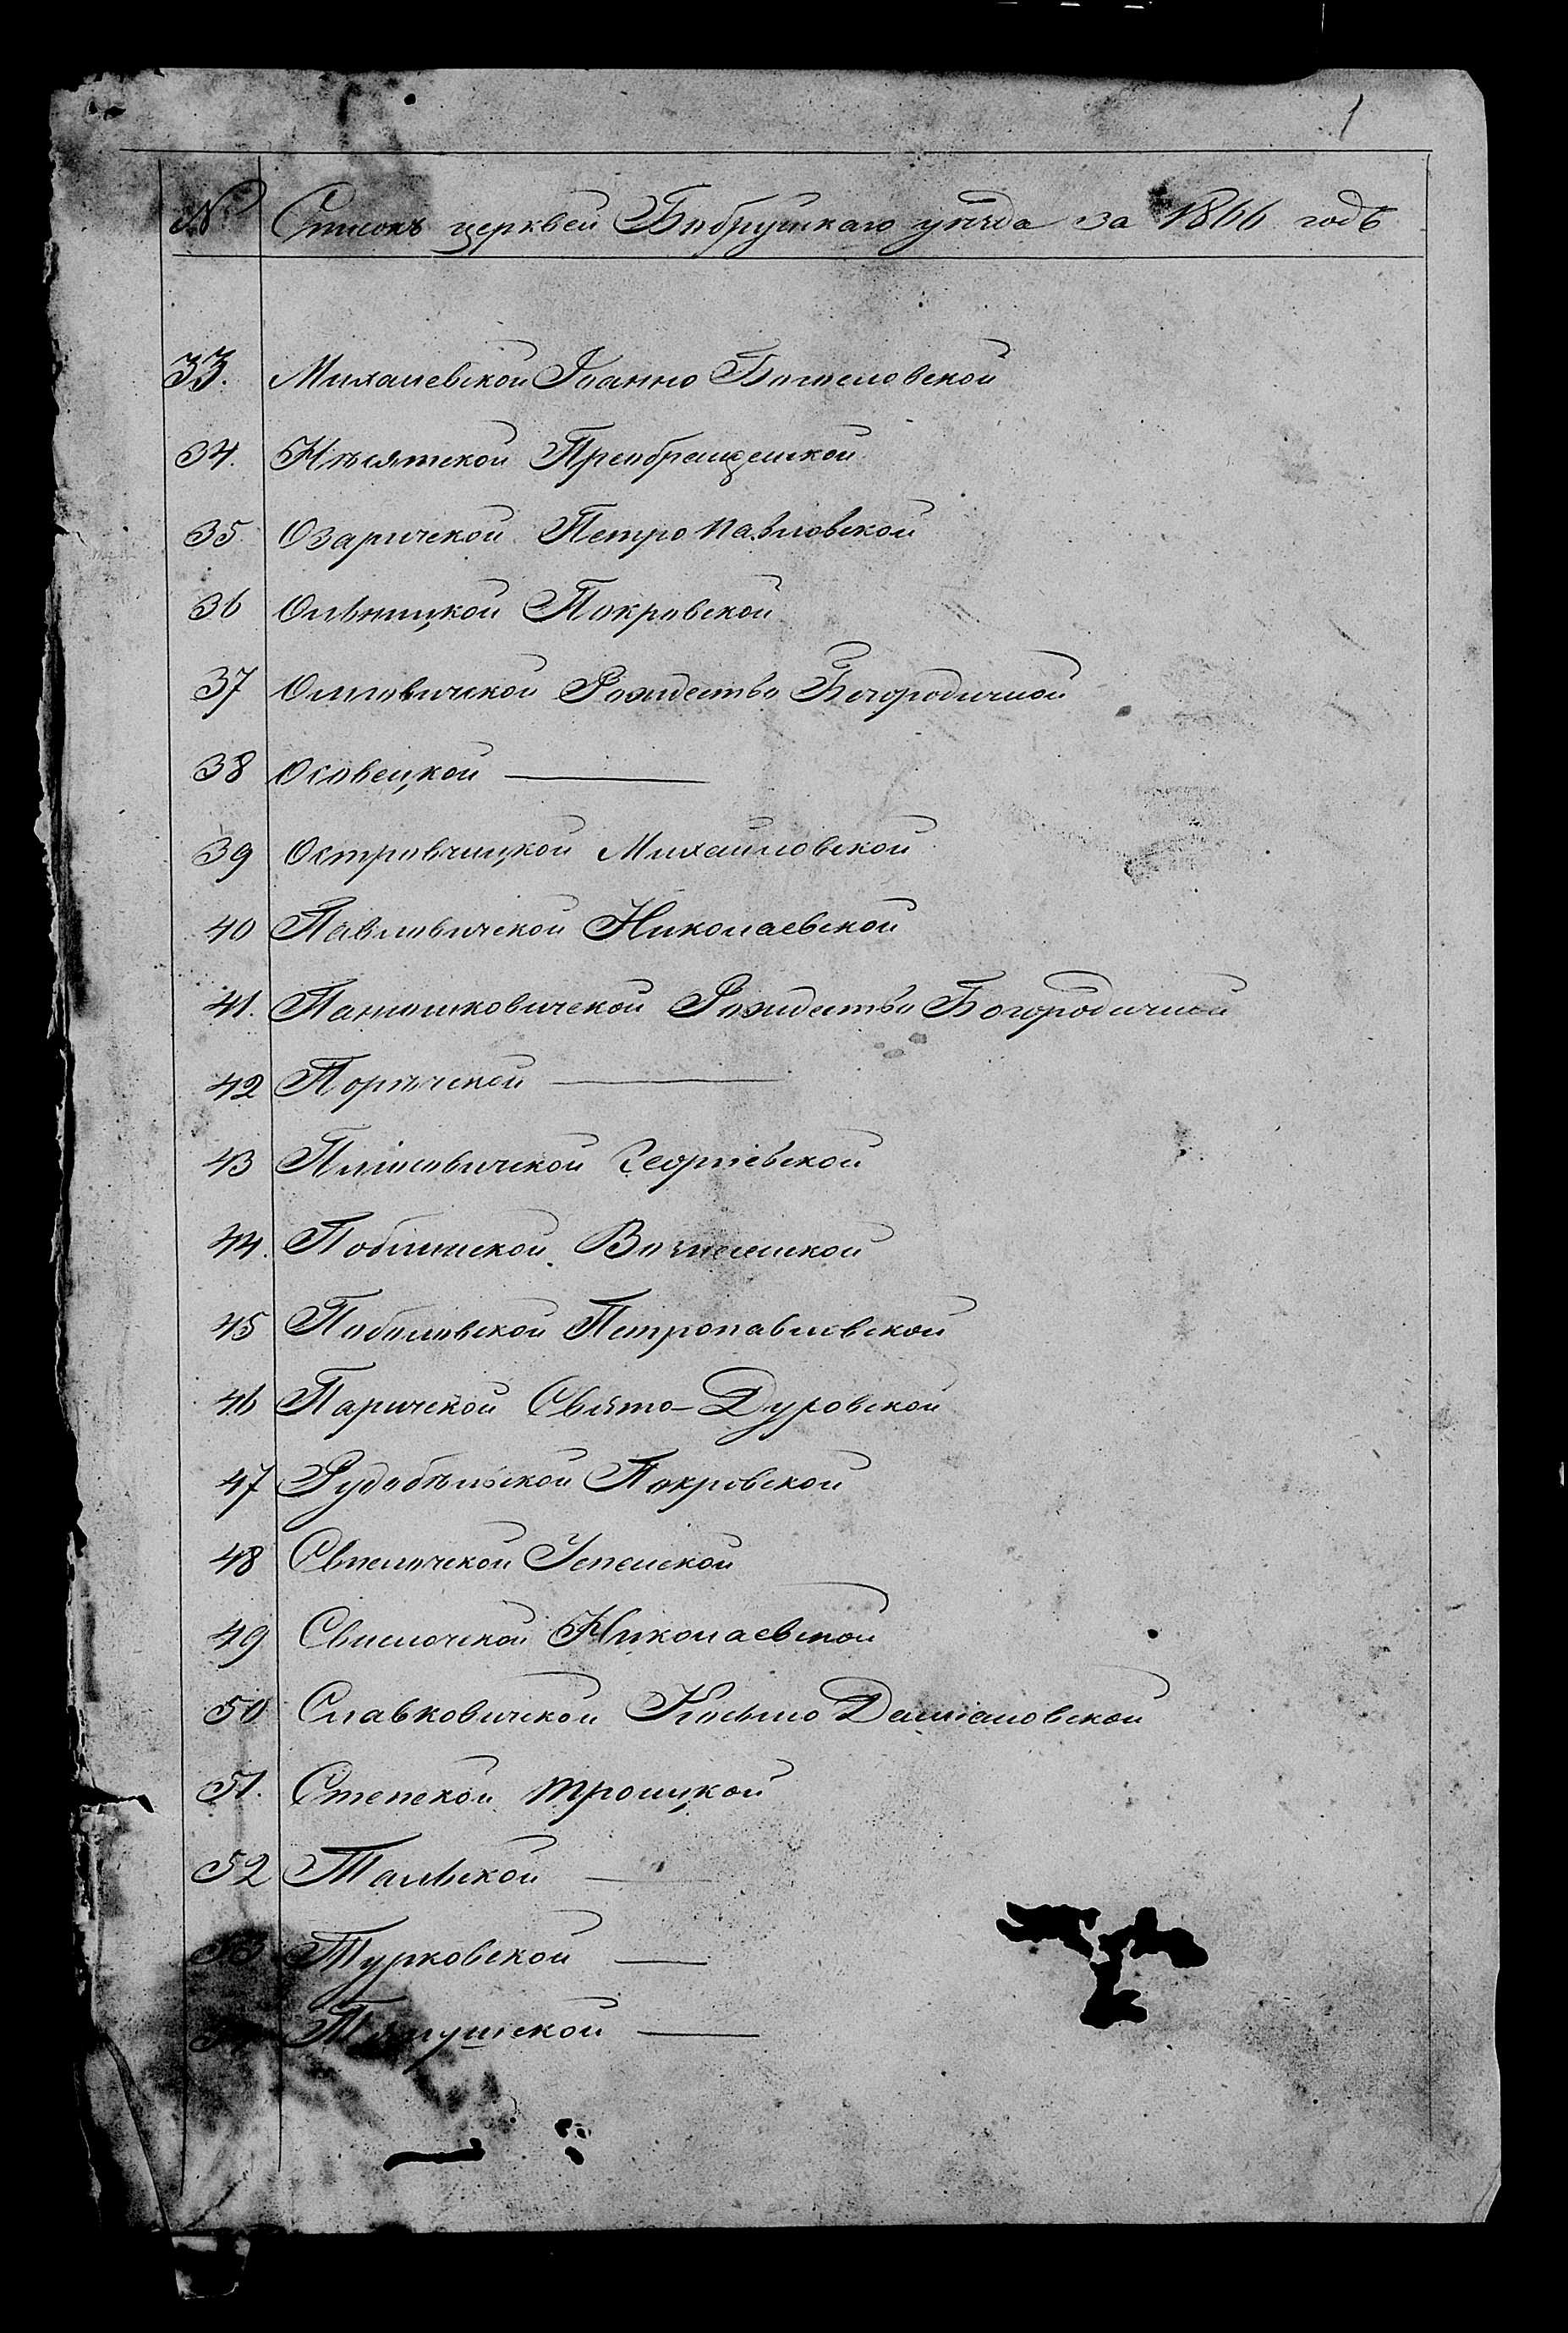 1
№ Списокъ церквей Бобруйскаго уѣзда за 1866 годъ
33. Михалевской Іоанно Богословской
34. Несятской Преображенской
35 Озаричской Петро Павловской
36 Ольницкой Покровской
37 Омговичской Рождество Богородичной
38 Осовецкой —
39 Островчицкой Михайловской
40 Павловичской Николаевской
41. Панюшковичской Рождество Богородичной
42 Порѣчской —
43 Плёсовичской Георгіевской
44. Поблинской Вознесенской
45 Поболовской Петропавловской
46 Паричской Свято-Духовской
47 Рудобѣльской Покровской
48 Свислочской Успенской
49 Свислочской Николаевской
50 Славковичской Косьмо Даміановской
51. Степской троицкой
52 Тальской —
53 Турковской —